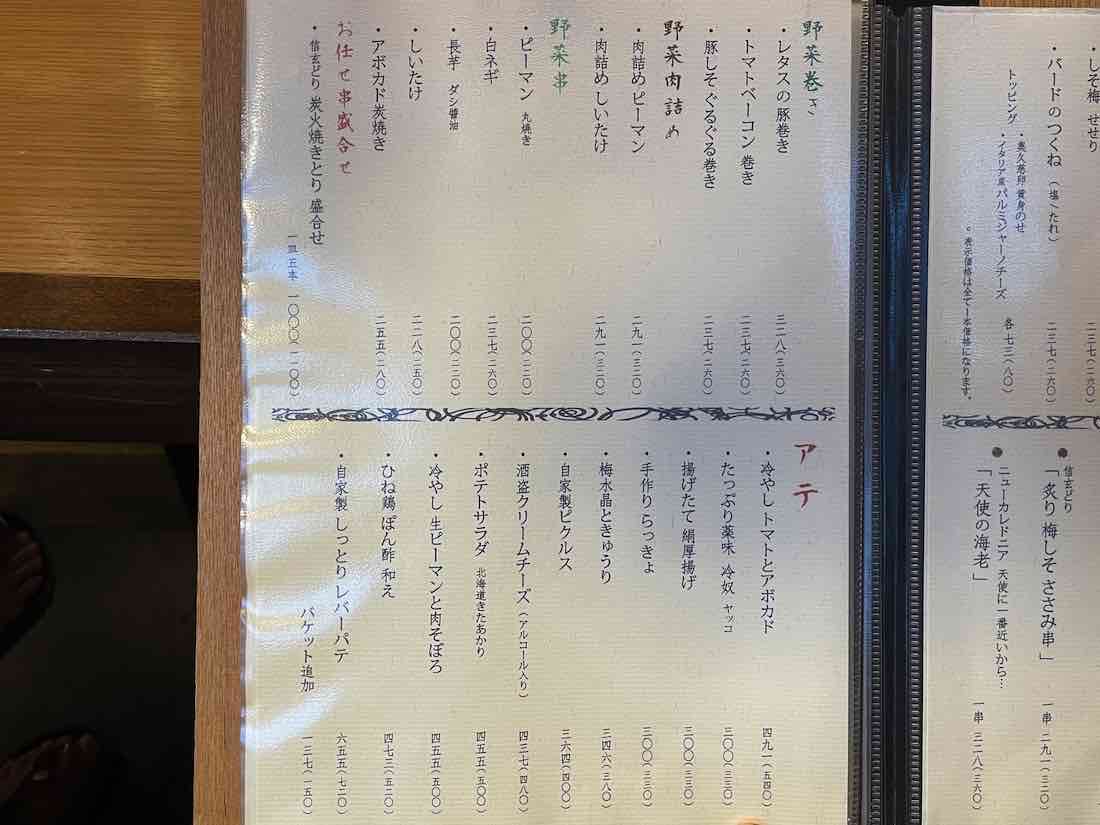 ・しそ梅 せせり 二三七(二六〇)
・バードのつくね (塩・たれ) 二三七(二六〇)
トッピング ・奥久慈卵 黄身のせ
・イタリア産 パルミジャーノチーズ 各 七三(八〇)
。表示価格は全て1本価格になります。
●信玄どり
「炙り 梅しそ ささみ串」 一串 二九一(三二〇)
●ニューカレドニア 天使に一番近いから…
「天使の海老」 一串 三二八(三六〇)
野菜巻き
・レタスの豚巻き 三二八(三六〇)
・トマトベーコン 巻き 二三七(二六〇)
・豚しそ ぐるぐる巻き 二三七(二六〇)
野菜肉詰め
・肉詰め ピーマン 二九一(三二〇)
・肉詰め しいたけ 二九一(三二〇)
野菜串
・ピーマン 丸焼き 二〇〇(二二〇)
・白ネギ 二三七(二六〇)
・長芋 ダシ醤油 二〇〇(二二〇)
・しいたけ 二二八(二五〇)
・アボカド炭焼き 二五五(二八〇)
お任せ串盛合せ
・信玄どり 炭火焼きとり 盛合せ
一皿 五本 一〇〇〇(一一〇〇)
アテ
・冷やしトマトとアボカド 四九一(五四〇)
・たっぷり薬味 冷奴 ヤッコ 三〇〇(三三〇)
・揚げたて 絹厚揚げ 三〇〇(三三〇)
・手作りらっきょ 三〇〇(三三〇)
・梅水晶ときゅうり 三四六(三八〇)
・自家製ピクルス 三六四(四〇〇)
・酒盗クリームチーズ (アルコール入り) 四三七(四八〇)
・ポテトサラダ 北海道きたあかり 四五五(五〇〇)
・冷やし 生ピーマンと肉そぼろ 四五五(五〇〇)
・ひね鶏 ぽん酢 和え 四七三(五二〇)
・自家製 しっとり レバーパテ 六五五(七二〇)
バケット追加 一三七(一五〇)